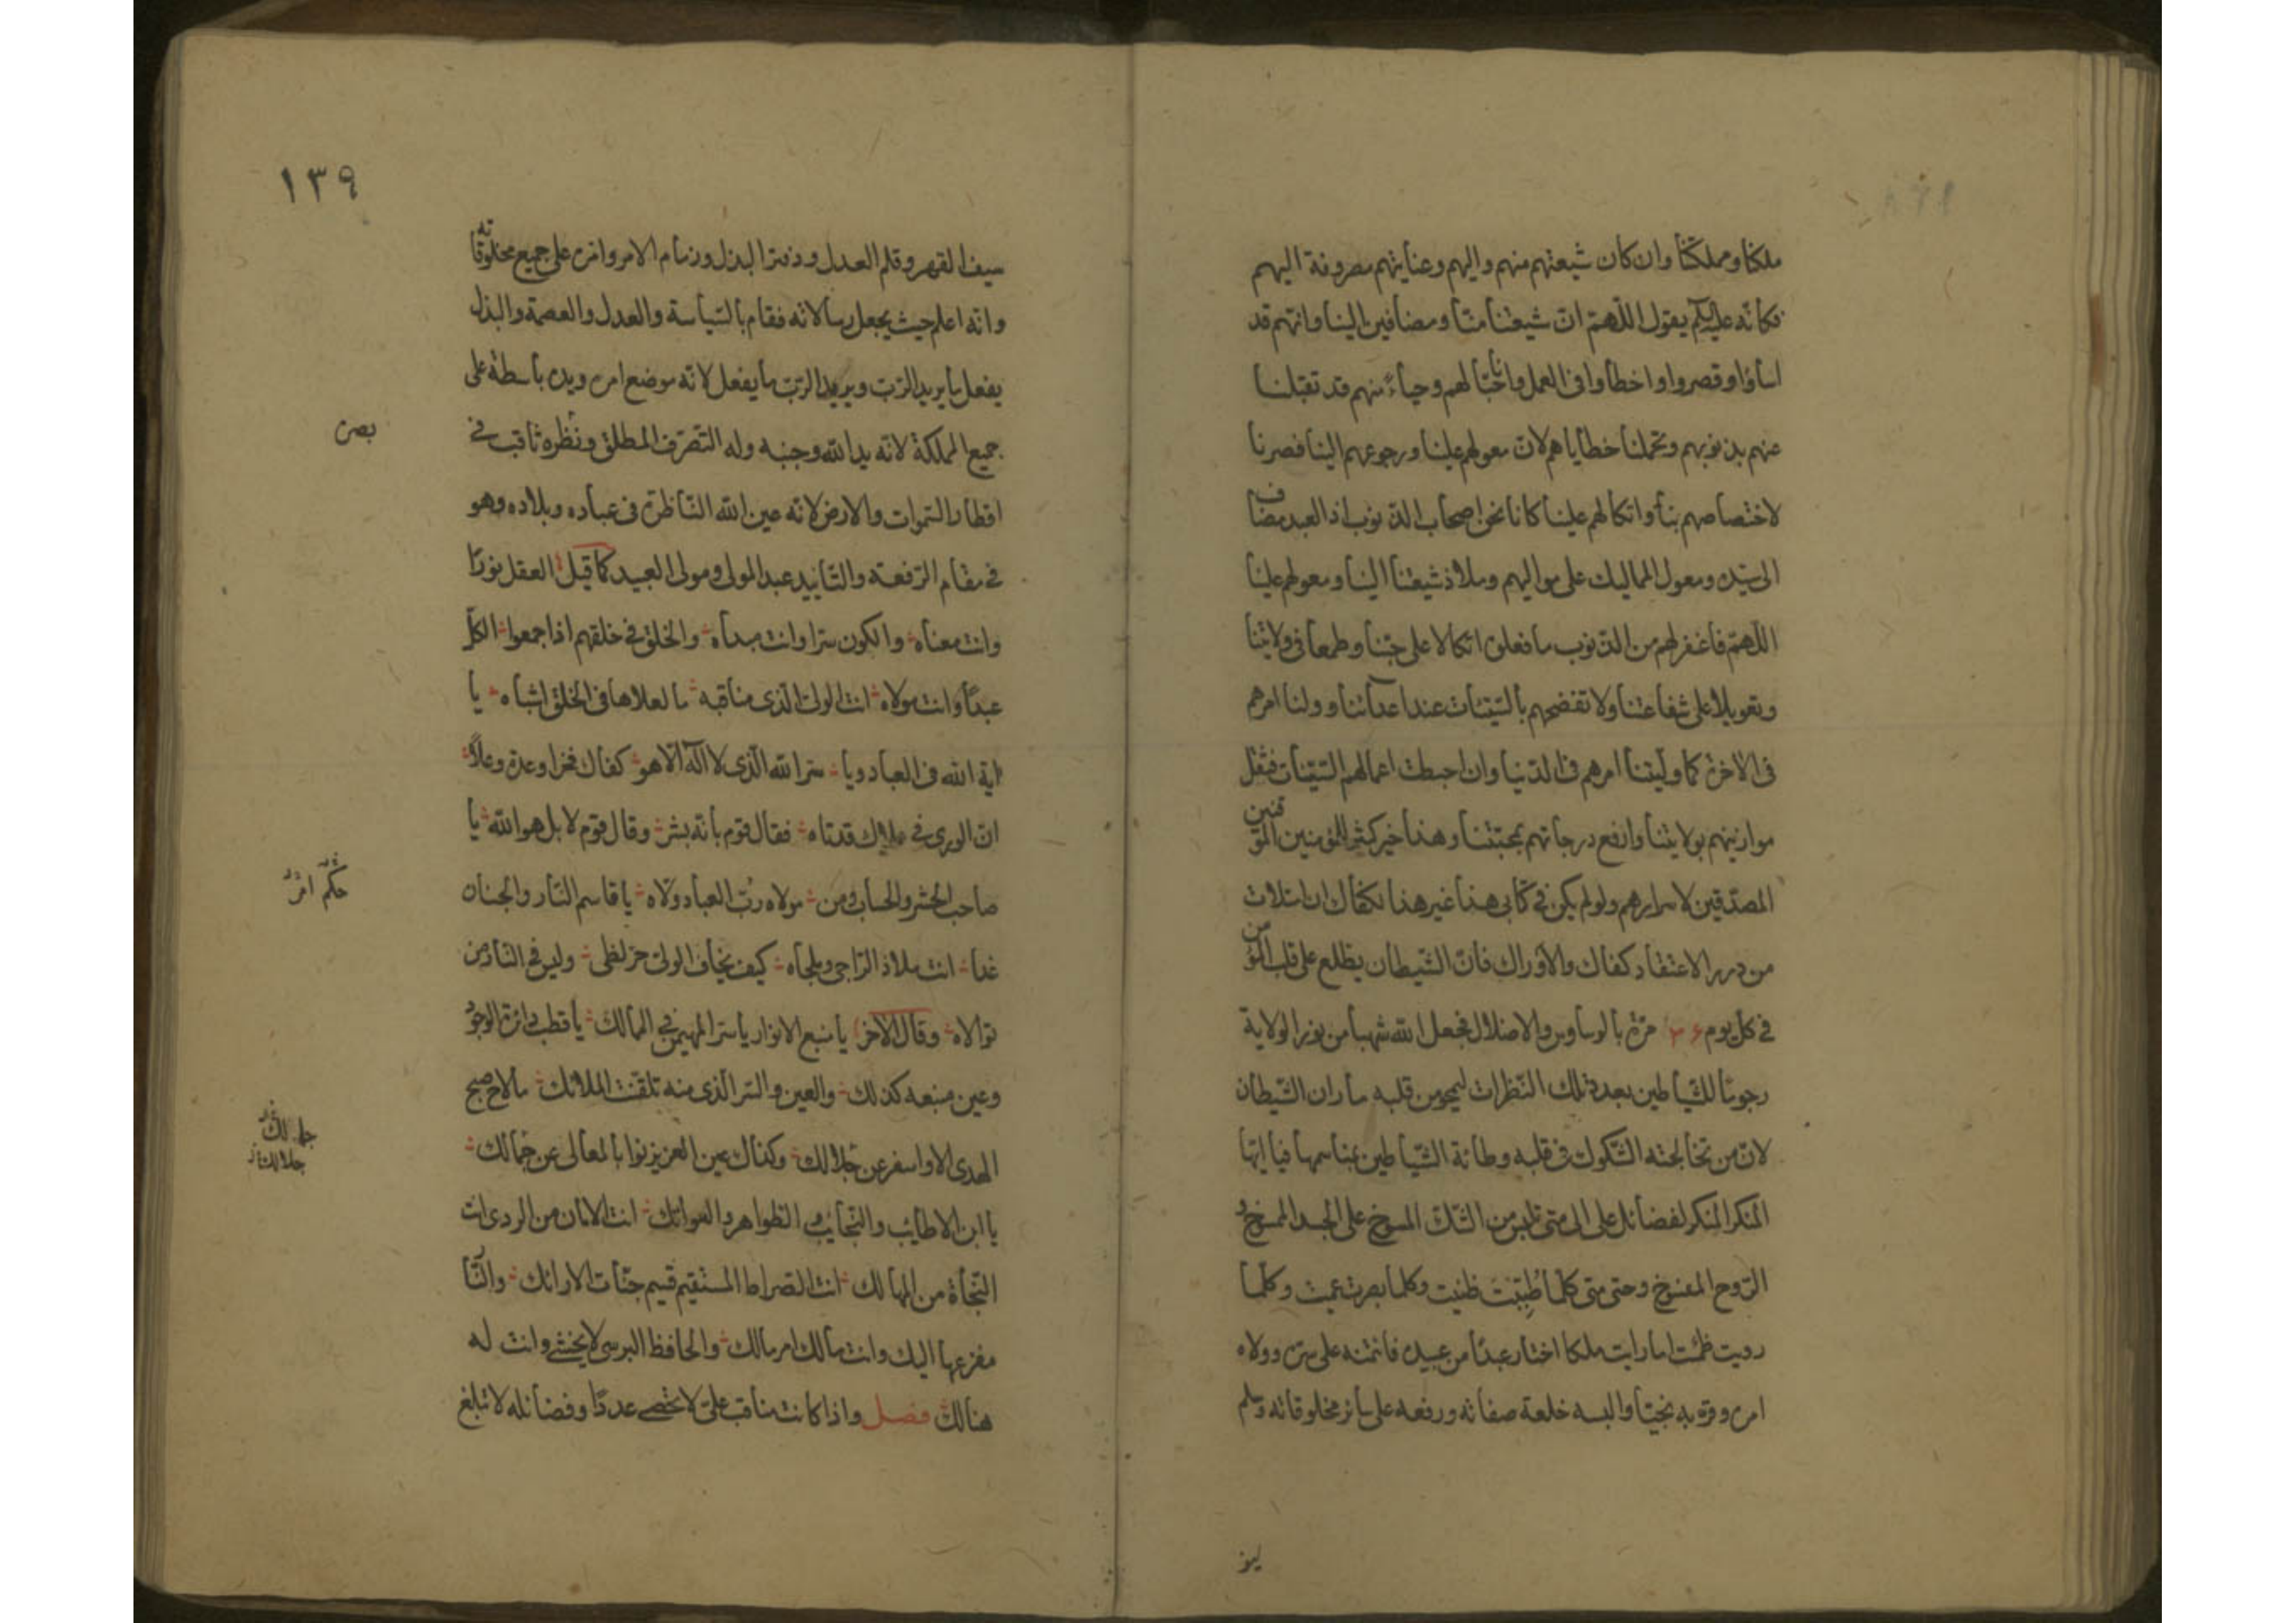 ملكنا ومملكتنا وان كان شيعتهم منهم واليهم وعنايتهم مصروفة اليهم
فكانه عليه السلم يقول اللهمّ انّ شيعتنا منّا ومضافين الينا وانهم قد
اساؤا وقصروا واخطاوا فى العمل واحبّانا حبّا لهم وحياء منهم قد تقبلنا
عنهم بذنوبهم وتحملنا خطاياهم لانّ معولهم علينا ورجوعهم الينا فصرنا
لاختصاصهم بنا واتكالهم علينا كانا نحن اصحاب الذنوب اذ العبد مضاف
الى سيّده ومعول المماليك على مواليهم وملاذ شيعتنا الينا ومعولهم علينا
اللهمّ فاغفر لهم من الذنوب ما فعلوه اتكالا على حبّنا وطمعا فى ولايتنا
وتعويلا على شفاعتنا ولا تفضحهم بالسّيئات عند اعدآئنا وولنا امرهم
فى الآخرة كما ولّيتنا امرهم فى الدّنيا وان احبطت اعمالهم السّيئات فثقل
موازينهم بولايتنا وارفع درجاتهم بمحبّتنا وهذا خير كثير للمؤمنين الموقنين
المصدّقين لاسرارهم ولو لم يكن فى كتابى هذا غير هذا لكفاك ان امتلات
من درر الاعتقاد كفاك والآوراك فانّ الشّيطان يطلع على قلب المؤمن
فى كل يوم ٣٦٠ مرّة بالوساوس والاضلال فجعل الله شهبا من نور الولاية
رجوما للشّياطين بعدد تلك النّظرات ليمحو من قلبه ما ران الشّيطان
لانّ من تخالجته الشّكوك فى قلبه وطائة الشّياطين بمناسمها فيا ايّها
المنكر المنكر لفضائل على الى متى تلبس من الشّكّ المسوخ على الجسد الممسوخ و
الرّوح المفسوخ وحتى متى كلّما طُبِّبْتَ ظنيت وكلما بصرت عميت وكلّما
رويت ظمئت اما رايت ملكا اختار عبدًا من عبيده فائتمنه على سرّه وولاه
امره وقرّبه نجيّا والبسه خلعة صفاته ورفعه على سائر مخلوقاته وسلم
ليه
١٣٩
سيف القهر وقلم العدل ودفتر البذل وزمام الامر وامره على جميع مخلوقاته
وانه اعلم حيث يجعل رسالاته فقام بالسّياسة والعدل والعصمة والبذل
يفعل ما يريد الرّبّ ويريد الرّبّ ما يفعل لانّه موضع امره ويده باسطة على
جميع المملكة لانّه يد الله وجنبه وله التّصرّف المطلق ونظره ثاقب فى
بصره
اقطار السّموات والارض لانّه عين الله النّاظرة فى عباده وبلاده وهو
فى مقام الرّفعة والتّاييد عبد المولى ومولى العبيد كما قيل العقل نورًا
وانت معناه والكون سرّا وانت مبداه والخلق فى خلقهم اذا جمعوا الكلّ
عبدًا وانت مولاه انت الولىّ الّذى مناقبه ما لعلاها فى الخلق اشباه يا
اية الله فى العباد ويا سرّ الله الّذى لا اله الّا هو كفاك فخرا وعزة وعلاً
انّ الورى فى علاك قد تاه فقال قوم بانّه بشر وقال قوم لا بل هو الله يا
حكم امر
صاحب الحشر والحساب ومن مولاه ربّ العباد ولّاه يا قاسم النّار والجنان
غدا انت ملاذ الرّاجى وملجاه كيف يخاف الولىّ حرّ لظى وليس فى النّار من
تولاه وقال الآخر يا منبع الانوار يا سرّ المهيمن فى الممالك يا قطب دائرة الوجود
وعين منبعه كذلك والعين والسّر الّذى منه تلقّنت الملائك ما لاح صبح
جلالك
جلالك
الهدى الا واسفر عن جلالك وكذاك عين العزيز نوابا لمعالى عن جمالك
يا ابن الاطايب والنّجايب و الظّواهر والعواتك انت الامان من الردى انت
النّجاة من المهالك انت الصراط المستقيم قسيم جنّات الارائك والنّار
مفزعها اليك وانت مالك امر مالك والحافظ البرسى لا يخشى وانت له
هنالك فصل واذا كانت مناقب علىّ لا تحصى عددًا وفضائله لا تبلغ